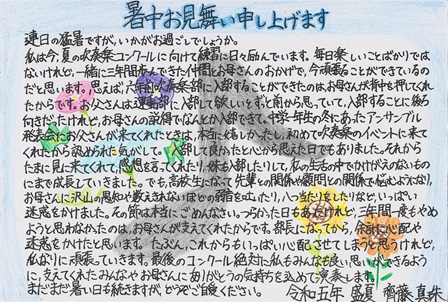 暑中お見舞い申し上げます
連日の猛暑ですが、いかがお過ごしでしょうか。
私は今、夏の吹奏楽コンクールに向けて練習に日々励んでいます。毎日楽しいことばかりでは
ないけれど、一緒に三年間奏でてきた仲間とお母さんのおかげで、今頑張ることができているの
だと思います。思えば、吹奏楽部に入部することができたのは、お母さんが背中を押してくれ
たからです。お父さんは運動部に入部して欲しいとずっと前から思っていて、入部することに後ろ
向きだったけれど、お母さんの説得でなんとか入部できて、中学一年生の冬にあったアンサンブル
発表会にお父さんが来てくれたときは、本当に嬉しかったし、初めて吹奏楽のイベントに来て
くれたから認められた気がして、入部して良かったと心から思えた日でもありました。それから
たまに見に来てくれて、感想を言ってくれたり、妹も入部したりして、私の生活の中でかけがえのないもの
にまで成長していきました。でも、高校生になって先輩との関係や顧問との関係で悩むようになり、
お母さんに沢山の愚知や数えきれないほどの弱音を吐いたり、八つ当たりをしたりなど、いっぱい
迷惑をかけました。その節は本当にごめんなさい。つらかった日もあったけれど、三年間一度もやめ
ようと思わなかったのは、お母さんが支えてくれたからです。部長になってから、余計に心配や
迷惑をかけたと思います。たぶん、これからもいっぱい心配させてしまうと思うけれど、
私なりに頑張っていきます。最後のコンクール絶対に私もみんなも良い思いができるよう
に、支えてくれたみんなやお母さんにありがとうの気持ちを込めて演奏します。
まだまだ暑い日も続きますが、どうぞご自愛ください。 令和五年 盛夏 齋藤真珠